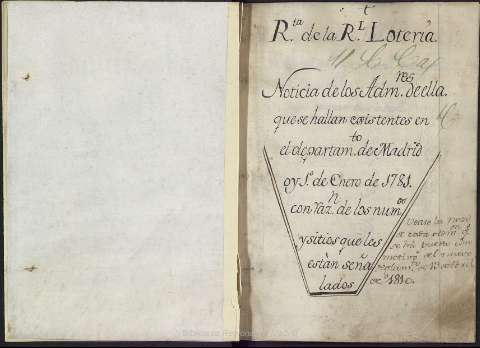 t
R.ta de la R.L Lotería.
Noticia de los Adm.res de ella.
que se hallan existentes en
el departam.to de Madrid
oy 1.º de Enero de 1781.
con Raz.n de los num.os
y sitios que les
estàn seña
lados
Vease la
de esta
se ha puesto con
motivo del nuevo
de 13 de
de 1810.
Biblioteca Regional de Madrid